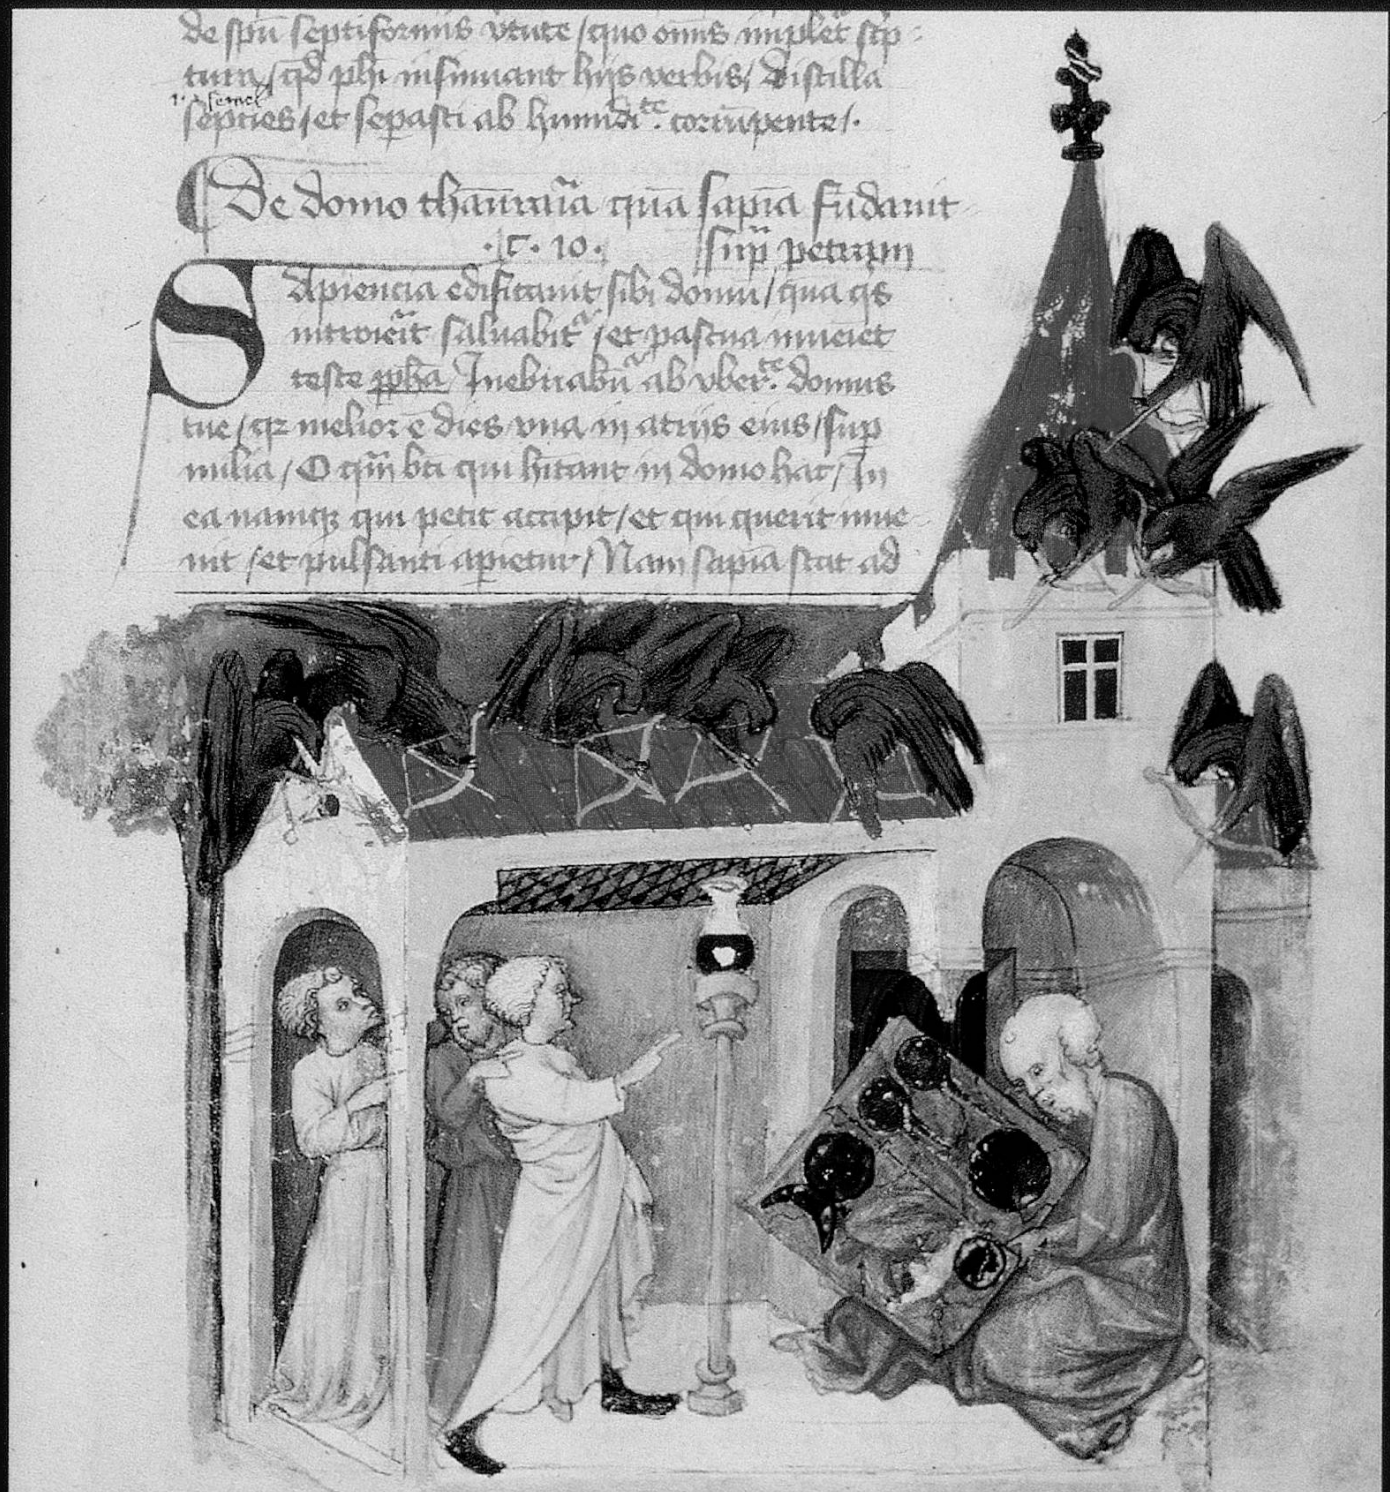 de spū septiformis v̄tute / quo om̄is implet̄ sc̄p
tura / qd̄ ph̄i insinuant hijs verbis / Distilla
.i. semel
septies / et sepasti ab humidi.te corrūpente /.
¶ De domo thesauraria quā sapīa fūdauit
.C. 10. / sup̄ petram
Sapiencia edificauit sibi domū / quā q̄s
introierit saluabit̄ / et pascua inueiet
teste ꝓph̄a / Inebriabūt̄ ab vber.te domus
tue / qz melior ē dies vna in atrijs eius / sup
milia / O qm̄ bt̄i qui hītant in domo hac / In
ea namqz qui petit accipit / et qui querit inue
nit / et pulsanti apietur / Nam sapīa stat ad